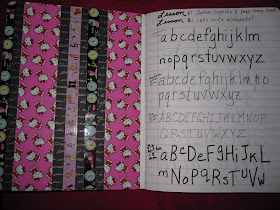 Lesson 1:
Lesson 2: Let's write alphabets!
abcdefghijklm
nopqrstuvwxyz
abcdefghijklmno
pqrstuvwxyz
ABCDEFGHIJKLMNOP
QRSTUVWXYZ
aBcDeFgHiJKL
mNoPqRsTuVwY